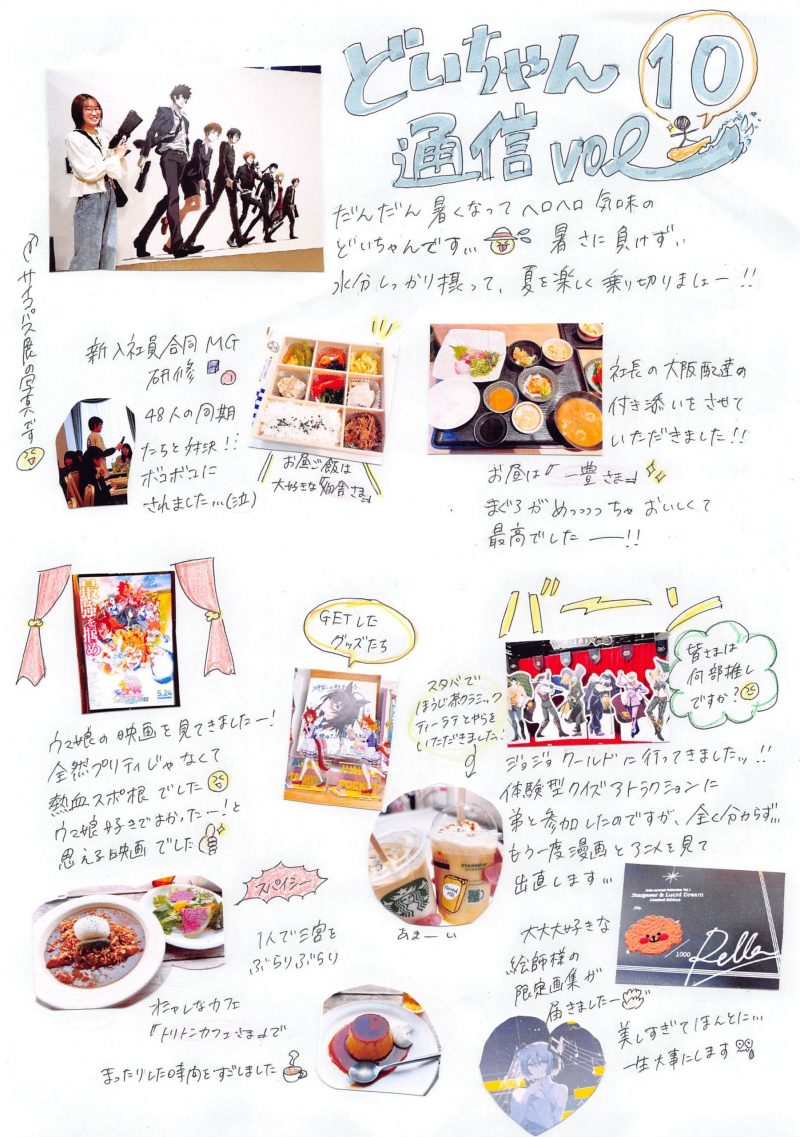 どいちゃん
通信 vol 10
だんだん暑くなってヘロヘロ気味の
どいちゃんです… 暑さに負けず…
水分しっかり摂って、夏を楽しく乗り切りましょー!!
サイコパス展の写真です
新入社員合同MG
研修
48人の同期
たちと対決!!
ボコボコに
されました…(泣)
お昼ご飯は
大好きな『田舎さま』
社長の大阪配達の
付き添いをさせて
いただきました!!
お昼は『一豊さま』
まぐろがめっっっっちゃおいしくて
最高でしたー!!
最強を掴め
5.24
ウマ娘の映画を見てきましたー!
全然プリティじゃなくて
熱血スポ根でした
ウマ娘好きでよかったー!と
思える映画でした
GETした
グッズたち
スタバで
ほうじ茶クラシック
ティーラテとやらを
いただきました!
あまーい
バーン
皆さまは
何部推し
ですか?
ジョジョワールドに行ってきましたッ!!
体験型クイズアトラクションに
弟と参加したのですが、全く分からず…
もう一度漫画とアニメを見て
出直します…
スパイシー
1人で三宮を
ぶらりぶらり
オシャレなカフェ
『トリトンカフェさま』で
まったりした時間をすごしました
大大大好きな
絵師様の
限定画集が
届きましたー
Stargazer & Lucid Dream
Limited Edition
No.
1000
Rella
美しすぎてほんとに…
一生大事にします